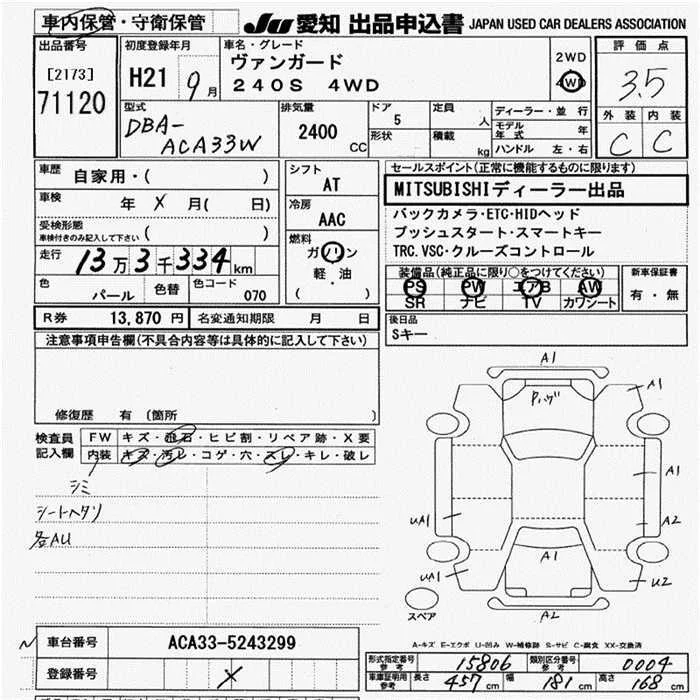 車内保管・守衛保管
JU 愛知 出品申込書 JAPAN USED CAR DEALERS ASSOCIATION
出品番号
[2173]
71120
初度登録年月
H21 9月
車名・グレード
ヴァンガード
240S 4WD
2WD
4WD
評価点
3.5
外装 内装
C C
型式
DBA-
ACA33W
排気量
2400
CC
ドア
5
形状
定員
人
積載
kg
ディーラー・並行
モデル年式 年
ハンドル 左・右
車歴
自家用・( )
車検
年 X 月( 日)
受検形態
車検付きのみ記入して下さい ( )
走行
13万3千334km
色
パール
色替
色コード
070
シフト
AT
冷房
AAC
燃料
ガソリン
軽・油
( )
セールスポイント(正常に機能するものに限ります)
MITSUBISHIディーラー出品
バックカメラ・ETC・HIDヘッド
プッシュスタート・スマートキー
TRC.VSC・クルーズコントロール
装備品(純正品に限り○をつけてください)
PS PW エアB AW
SR ナビ TV カワシート
新車保証書
有・無
R券 13,870 円 名変通知期限 月 日
後日品
Sキー
注意事項申告欄(不具合内容等は具体的に記入して下さい)
修復歴 有 (箇所 )
検査員
記入欄
FW キズ・飛石・ヒビ割・リペア跡・X要
内装 キズ・汚レ・コゲ・穴・スレ・キレ・破レ
シミ
シートヘタリ
各AU
A1
Pハゲ
A1
A1
A2
UA1
A1
UA1
U2
A2
スペア
A-キズ E-エクボ U-凹み W-補修跡 S-サビ C-腐食 XX-交換済
車台番号 ACA33-5243299
登録番号 X
型式指定番号
参考
15806
類別区分番号
参考
0004
車庫証明用
参考
長さ 457cm 幅 181cm 高さ 168cm